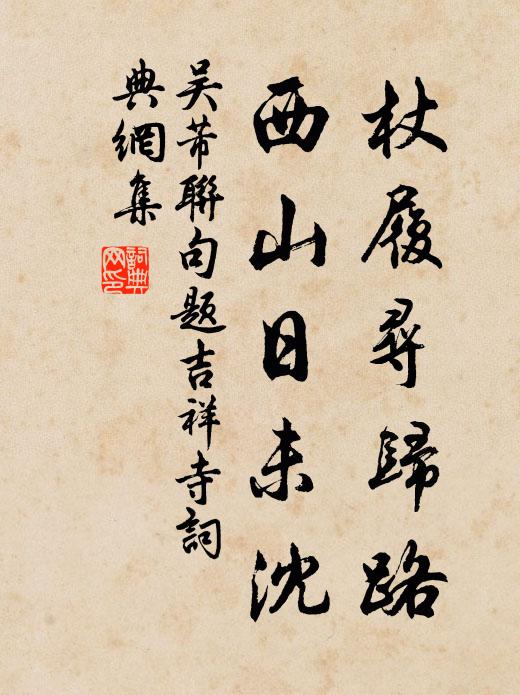 杖履尋歸路
西山日未沈
吴芾聯句題吉祥寺詞
典網集
詞典
网印